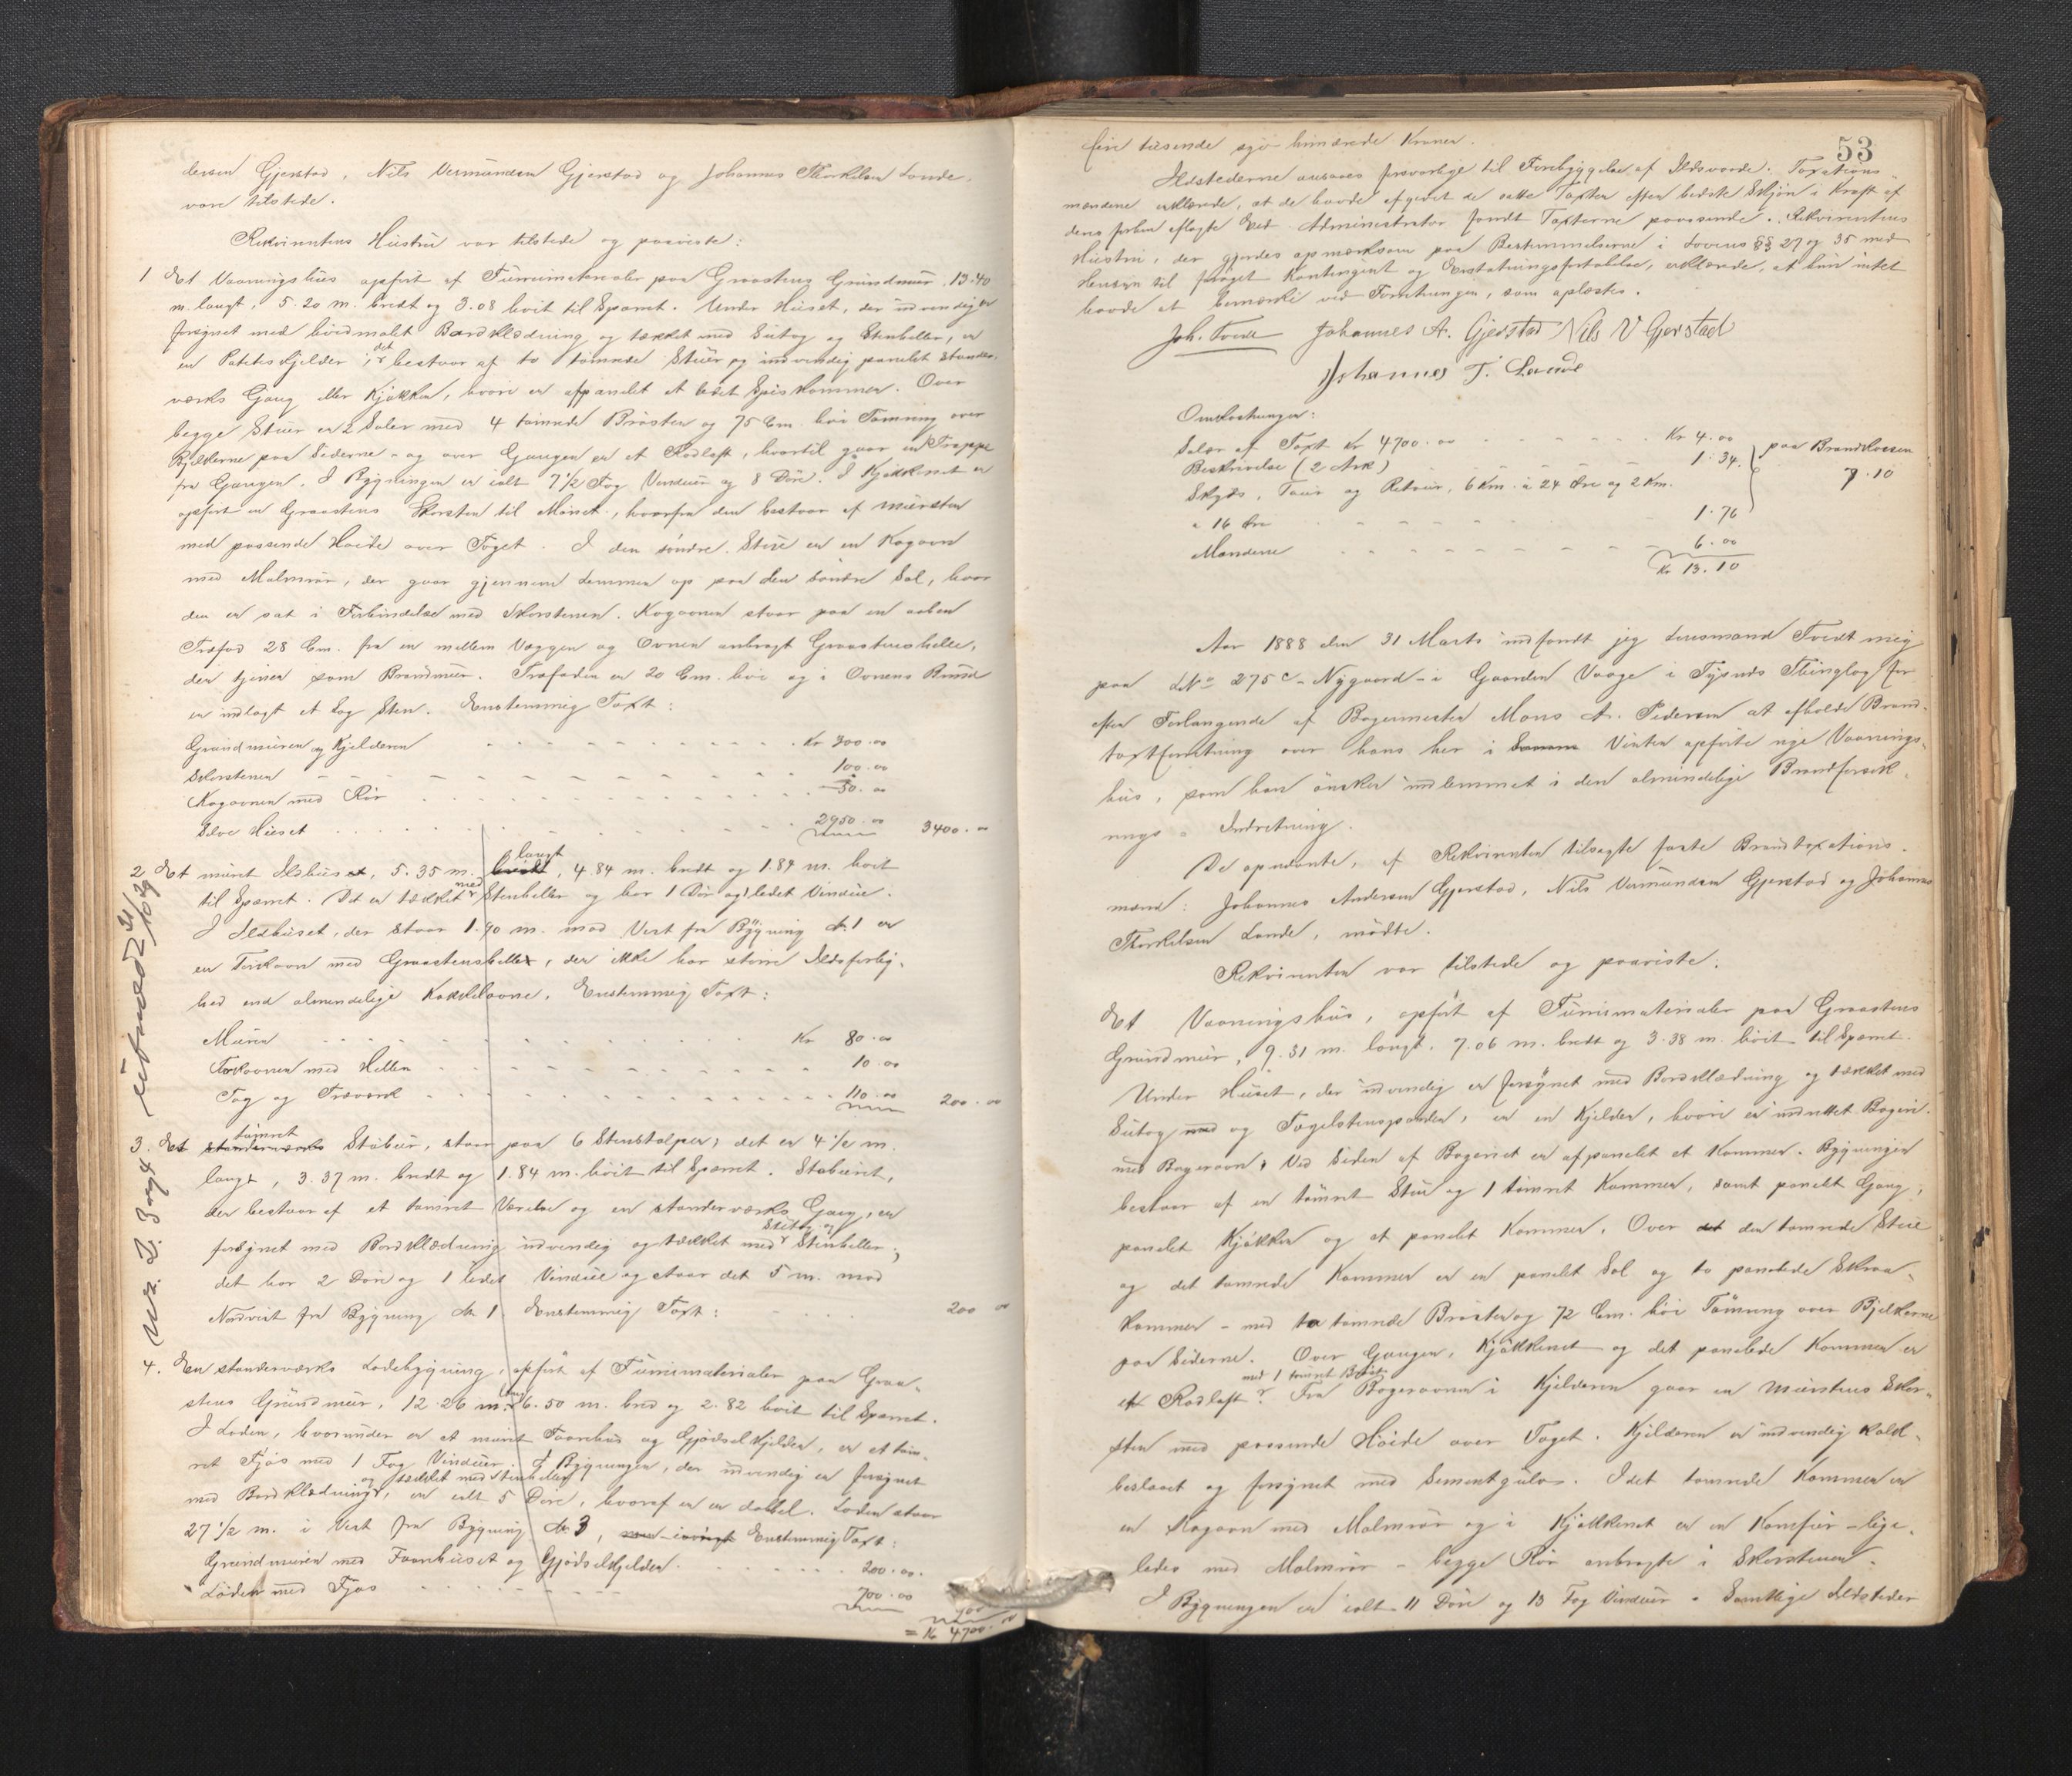 dersen Gjerstad, Nils Vermundsen Gjerstad og Johannes Thorkilsen Lande,
vare tilstede.
Rekvirentens Hustru var tilstede og paaviste:
1 Et Vaaningshus opført af Furumaterialer paa Graastens Grundmuur, 13.40
m. langt, 5.20 m. bredt og 3.08 høit til Spærret. Under Huset, der udvendig er
forsynet med hvidmalet Bordklædning og tækket med Sutag og Stenheller, er
en Potetskjelder, det bestaar af to tømrede Stuer og indvendig panelet stander-
værks Gang eller Kjøkken, hvori er afpanelet et lidet Spiskammer. Over
begge Stuer er 2 Saler med 4 tømrede Brøster og 75 Cm. høi Tømring over
Bjelkerne paa Siderne – og over Gangen er et Rodloft, hvortil gaar en Trappe
fra Gangen. I Bygningen er ialt 7 1/2 Fag Vinduer og 8 Døre. I Kjøkkenet er
opført en Graastens Skorsten til Mønet, hvorfra den bestaar af mursten
med passende Høide over Taget. I den søndre Stue er en Kogovn
med Malmrør, der gaar gjennem Lemmen op paa den søndre Sal, hvor
den er sat i Forbindelse med Skorstenen. Kogovnen staar paa en aaben
Træfod 28 Cm. fra en mellem Væggen og Ovnen anbragt Graastenshelle,
der tjener som Brandmuur. Træfoden er 20 Cm. høi og i Ovnens Bund
er indlagt et Lag Sten. Enstemmig Taxt:
Grundmuren og Kjelderen Kr 300.00
Skorstenen 100.00
Kogovnen med Rør 50.00
Selve Huset 2950.00 3400.00
2 Et muret Ildhus, 5.35 m. langt, 4.84 m. bredt og 1.84 m. høit
til Spærret. Det er tækket med Stenheller og har 1 Dør og 1 lidet Vindue.
I Ildhuset, der staar 1.90 m. mod Vest fra Bygning № 1 er
en Tørkovn med Graastenshelle, der ikke har større Ildsfarlig-
hed end almindelige Kakkelovne. Enstemmig Taxt:
Muren Kr 80.00
Tørkovnen med Hellen 10.00
Tag og Træværk 110.00 200.00
3. Et tømret Stabur, staar paa 6 Stenstolper; det er 4 1/2 m.
langt, 3.37 m. bredt og 1.84 m. høit til Spærret. Staburet,
der bestaar af et tømret Værelse og en standerværks Gang, er
forsynet med Bordklædning udvendig og tækket med Sutag og Stenheller;
det har 2 Døre og 1 lidet Vindue og staar det 5 m. mod
Nordvest fra Bygning № 1 Enstemmig Taxt: 200 00
4. En standerværks Ladebygning, opført af Furumaterialer paa Graa-
stens Grundmuur, 12.26 m. lang 6.50 m. bred og 2.82 høit til Spærret.
I Laden, hvorunder er et muret Faarehus og Gjødselkjelder, er et tøm-
ret Fjøs med 1 Fag Vinduer. I Bygningen, der udvendig er forsynet
med Bordklædning og tækket med Stenheller, er ialt 5 Døre, hvoraf en er dobbel. Laden staar
27 1/2 m. i Vest fra Bygning № 3, Enstemmig Taxt:
Grundmuren med Faarehuset og Gjødselkjelder 200.00.
Laden med Fjøs 700.00 900
= Kr 4700.00
Nr. 2. 3 og 4 udmeldt 31/10 29
53
fire tusende syv hundrede Kroner.
Ildstederne ansaaes forsvarlige til Forebyggelse af Ildsvaade. Taxations-
mændene erklærede, at de havde afgivet de satte Taxter efter bedste Skjøn i Kraft af
deres forhen aflagte Ed. Administrator fandt Taxterne passende. Rekvirentens
Hustru, der gjordes opmærksom paa Bestemmelserne i Lovens §§ 27 og 35 med
Hensyn til forøget Kontingent og Erstatningsfortabelse, erklærede, at hun intet
havde at bemærke ved Forretningen, som oplæstes.
Joh. Tvedt Johannes A. Gjerstad Nils V Gjerstad
Johannes T. Lande
Omkostninger:
Salær af Taxt Kr 4700.00 Kr 4.00
Beskrivelse (2 Ark) 1.34. paa Brandkassen
Skyds, Tour og Retour, 6 Km. à 24 Øre og 2 Km. 7.10
à 16 Øre 1.76
Mændene 6.00
Kr 13.10
Aar 1888 den 31 Marts indfandt jeg Lensmand Tvedt mig
paa LNo 275 c – Nygaard – i Gaarden Vaage i Tysnes Thinglag for
efter Forlangende af Bagermester Mons A. Pedersen at afholde Brand-
taxtforretning over hans her i Vinter opførte nye Vaanings-
hus, som han ønsker indlemmet i den almindelige Brandforsik-
rings-Indretning.
De opnævnte, af Rekvirenten tilsagte faste Brandtaxations-
mænd: Johannes Andersen Gjerstad, Nils Vermundsen Gjerstad og Johannes
Thorkilsen Lande, mødte.
Rekvirenten var tilstede og paaviste:
Et Vaaningshus, opført af Furumaterialer paa Graastens
Grundmuur, 9.31 m. langt, 7.06 m. bredt og 3.38 m. høit til Spærret.
Under Huset, der udvendig er forsynet med Bordklædning og tækket med
Sutag og Taglstenspander, er en Kjelder, hvori er indrettet Bageri
med Bagerovn, Ved Siden af Bageriet er afpanelet et Kammer. Bygningen
bestaar af en tømret Stue og 1 tømret Kammer, samt panelet Gang,
panelet Kjøkken og et panelet Kammer. Over den tømrede Stue
og det tømrede Kammer er en panelet Sal og to panelede Skraa-
kammer – med to tømrede Brøster og 72 Cm. høi Tømring over Bjelkerne
paa Siderne. Over Gangen, Kjøkkenet og det panelede Kammer er
et Rodloft med 1 tømret Brøst. Fra Bagerovnen i Kjelderen gaar en Murstens Skor-
sten med passende Høide over Taget. Kjelderen er indvendig kalk-
beslaaet og forsynet med Sementgulv. I det tømrede Kammer er
en Kogovn med Malmrør og i Kjøkkenet er en Komfur – lige-
ledes med Malmrør – begge Rør anbragte i Skorstenen.
I Bygningen er ialt 11 Døre og 13 Fag Vinduer. Samtlige Ildsteder